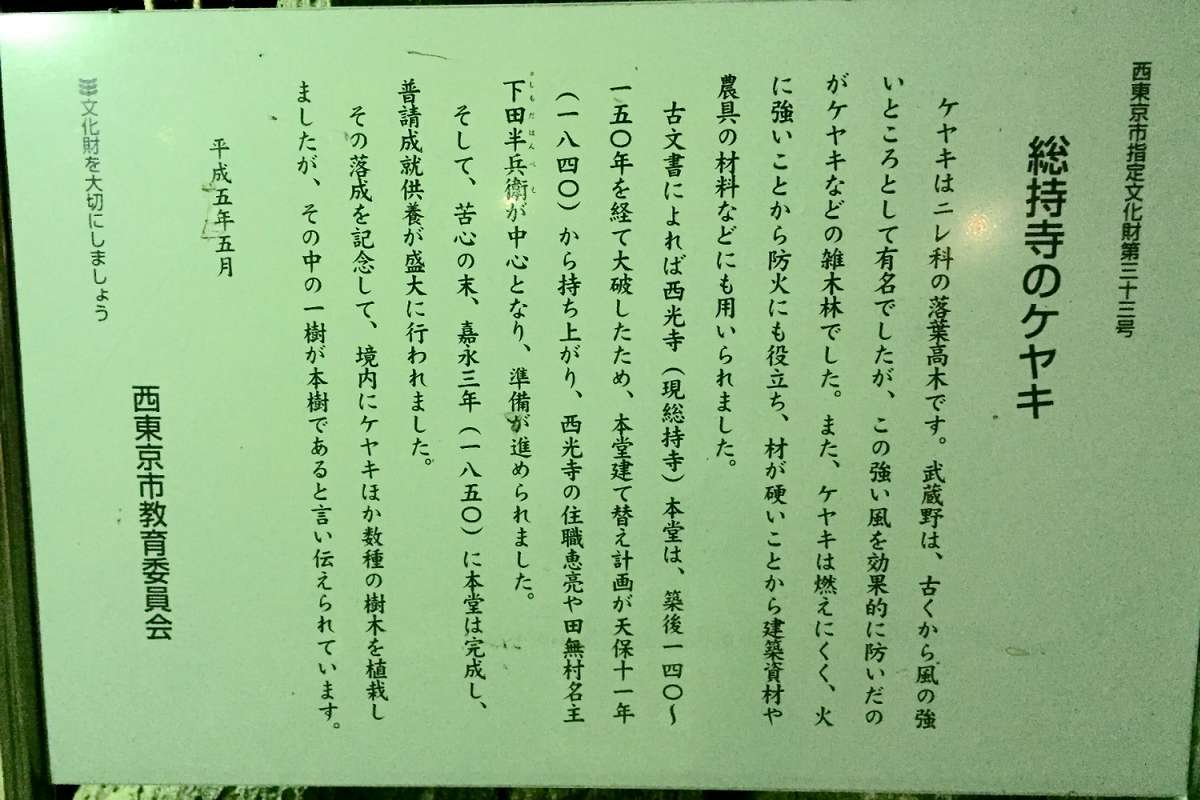 西東京市指定文化財第三十三号
総持寺のケヤキ
ケヤキはニレ科の落葉高木です。武蔵野は、古くから風の強
いところとして有名でしたが、この強い風を効果的に防いだの
がケヤキなどの雑木林でした。また、ケヤキは燃えにくく、火
に強いことから防火にも役立ち、材が硬いことから建築資材や
農具の材料などにも用いられました。
古文書によれば西光寺（現総持寺）本堂は、築後一四〇～
一五〇年を経て大破したため、本堂建て替え計画が天保十一年
（一八四〇）から持ち上がり、西光寺の住職恵亮や田無村名主
下田半兵衛が中心となり、準備が進められました。
そして、苦心の末、嘉永三年（一八五〇）に本堂は完成し、
普請成就供養が盛大に行われました。
その落成を記念して、境内にケヤキほか数種の樹木を植栽し
ましたが、その中の一樹が本樹であると言い伝えられています。
平成五年五月
西東京市教育委員会
文化財を大切にしましょう